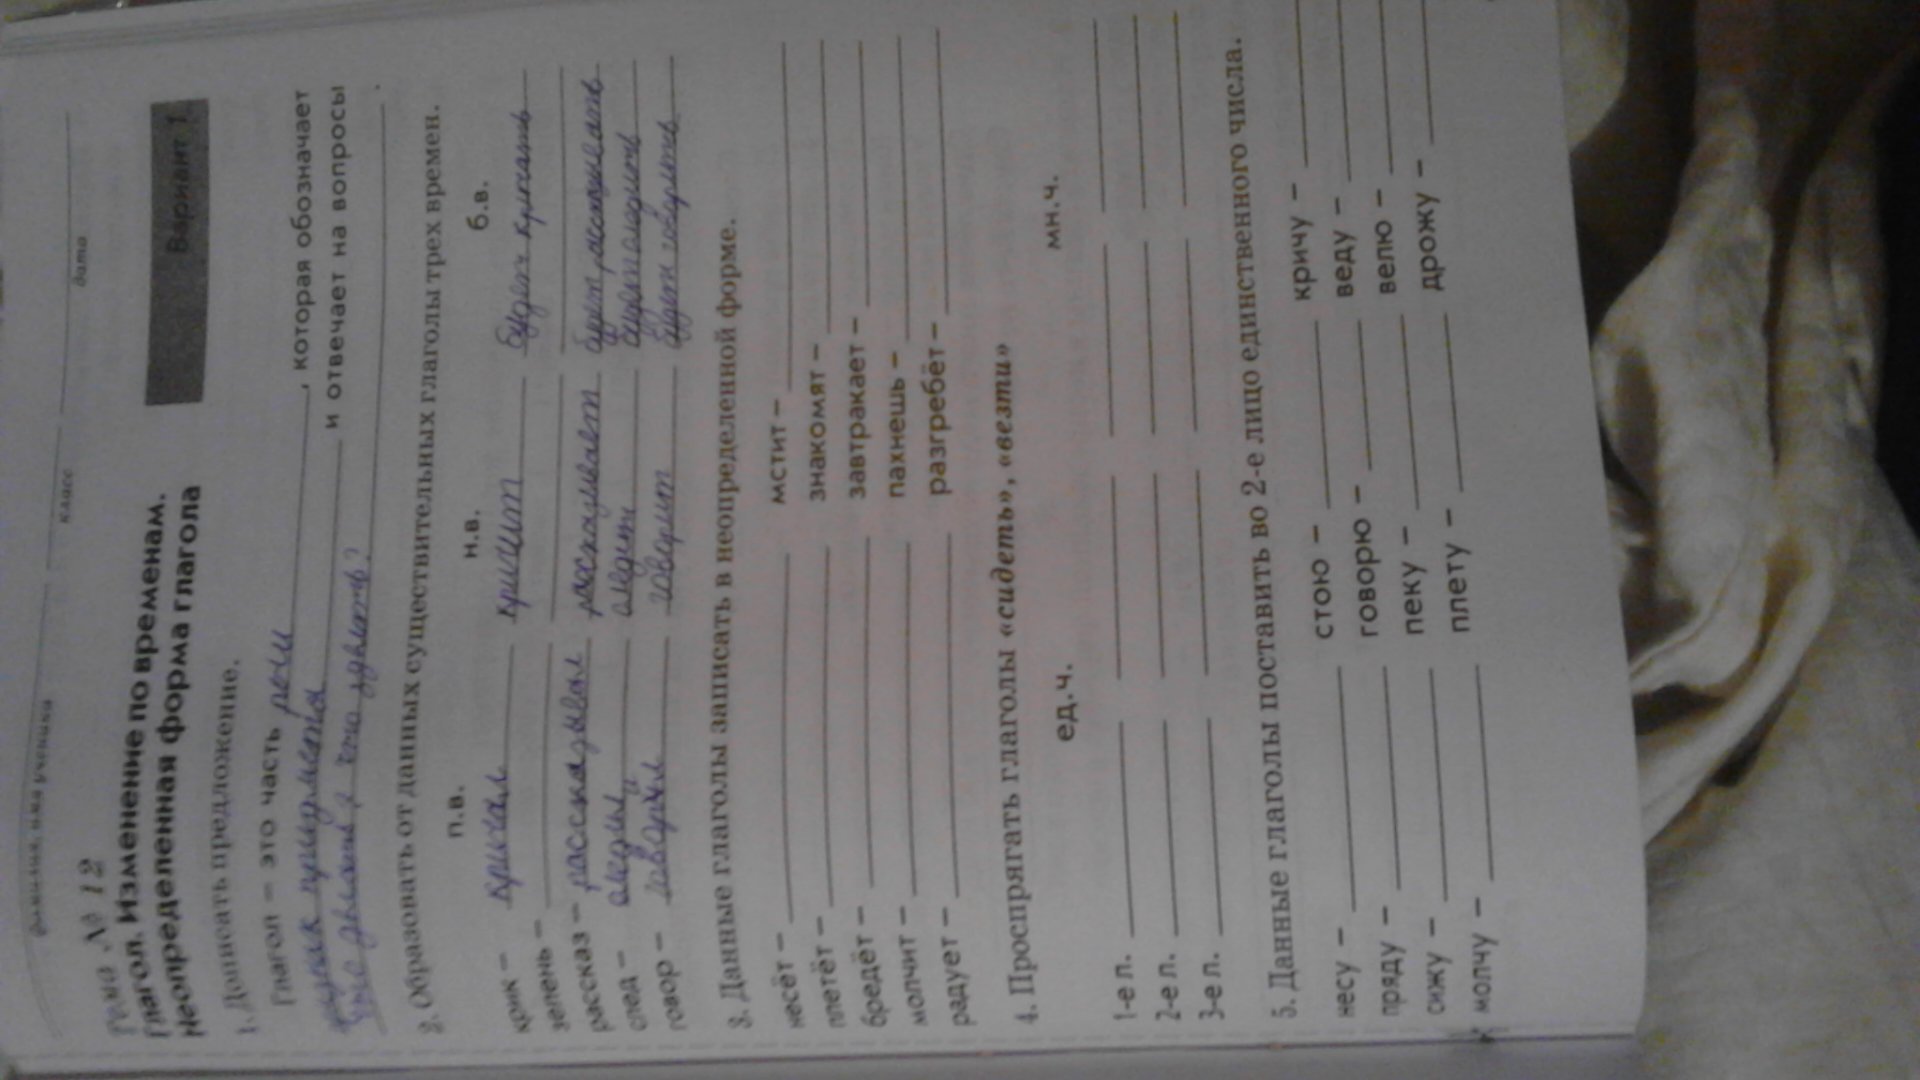 фамилия, имя ученика класс дата
Тема № 12
Глагол. Изменение по временам.
Неопределенная форма глагола
Вариант 1
1. Дописать предложение.
Глагол – это часть речи, которая обозначает
предмета и отвечает на вопросы
что делать?
2. Образовать от данных существительных глаголы трех времен.
п.в. н.в. б.в.
крик – кричал кричит будет кричать
зелень –
рассказ – рассказывал
след –
говор – говорил говорит будет говорить
3. Данные глаголы записать в неопределенной форме.
несёт – мстит –
плетёт – знакомят –
бредёт – завтракает –
молчит – пахнешь –
радует – разгребёт –
4. Проспрягать глаголы «сидеть», «везти»
ед.ч. мн.ч.
1-е л.
2-е л.
3-е л.
5. Данные глаголы поставить во 2-е лицо единственного числа.
несу – стою – кричу –
пряду – говорю – веду –
сижу – пеку – велю –
молчу – плету – дрожу –